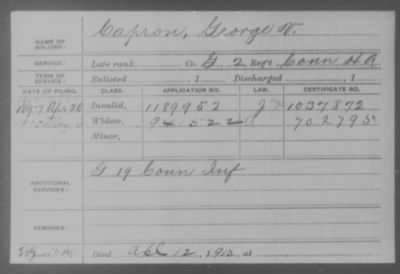 NAME OF SOLDIER: Capron, George W.
SERVICE: Late rank, Co. G, 2 Reg't Conn H A
TERM OF SERVICE: Enlisted , 1 Discharged , 1
DATE OF FILING. CLASS. APPLICATION NO. LAW. CERTIFICATE NO.
1897 Apr 26 Invalid, 1189952 1037872
Widow, 941522 702793
Minor,
ADDITIONAL SERVICES: G 19 Conn Inf
REMARKS:
Died Apl 12, 1910, at